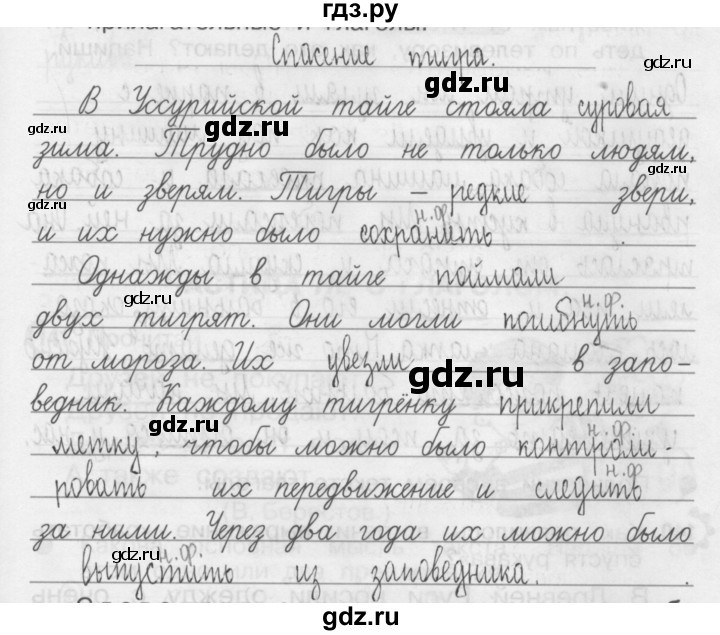 гдз.ру
прилагательные и глаголы.
Спасение тигра.
В Уссурийской тайге стояла суровая
зима. Трудно было не только людям,
но и зверям. Тигры — редкие звери,
н.ф.
и их нужно было сохранить .
Однажды в тайге поймали
н.ф.
двух тигрят. Они могли погибнуть
от мороза. Их увезли в запо-
ведник. Каждому тигрёнку прикрепили
метку, чтобы можно было контроли-
н.ф.
ровать их передвижение и следить
н.ф
за ними. Через два года их можно было
н.ф.
выпустить из заповедника.
gdz.ru
gdz.ru
gdz.ru
gdz.ru
gdz.ru
gdz.ru
gdz.ru
gdz.ru
gdz.ru
gdz.ru
gdz.ru
gdz.ru
gdz.ru
gdz.ru